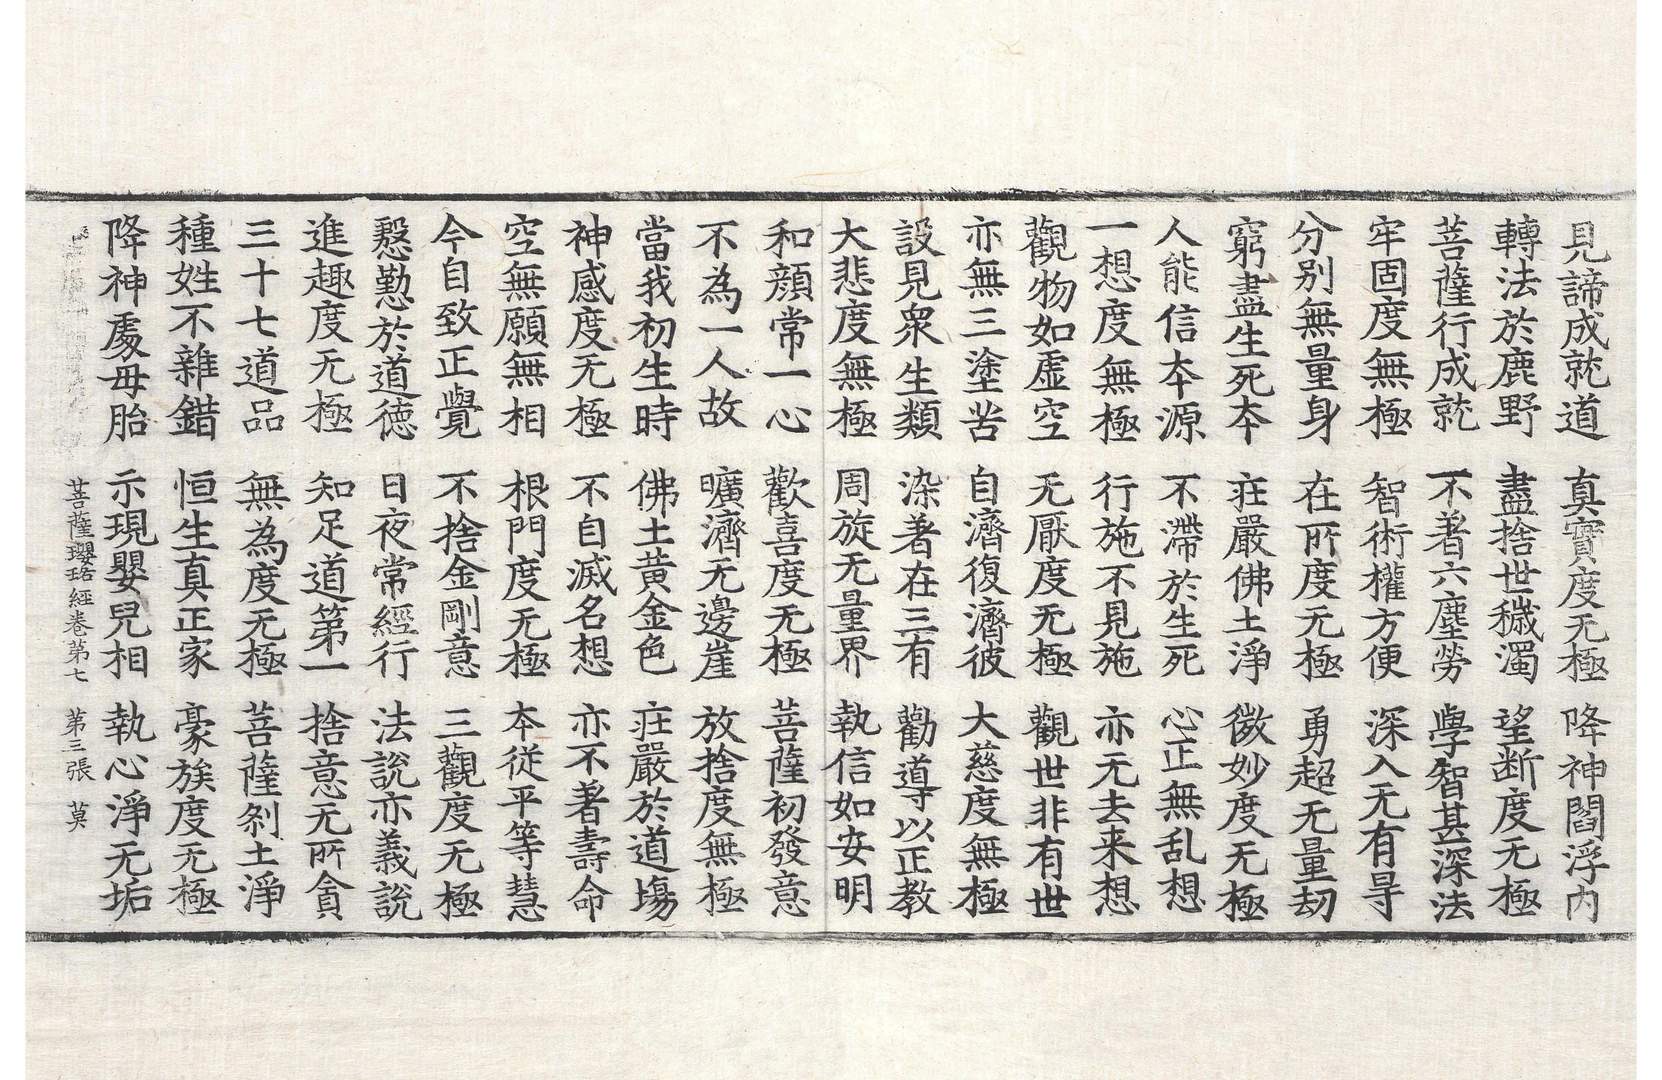 見諦成就道 真實度无極 降神閻浮内
轉法於鹿野 盡捨世穢濁 望断度无極
菩薩行成就 不著六塵勞 學智甚深法
牢固度無極 智術權方便 深入无有㝵
分别無量身 在所度无極 勇超无量劫
窮盡生死夲 㽵嚴佛土淨 微妙度无極
人能信夲源 不滯於生死 心正無乱想
一想度無極 行施不見施 亦无去来想
觀物如虛空 无厭度无極 觀世非有世
亦無三塗苦 自濟復濟彼 大慈度無極
設見衆生類 染著在三有 勸導以正教
大悲度無極 周旋无量界 執信如安明
和顔常一心 歡喜度无極 菩薩初發意
不為一人故 曠濟无邊崖 放捨度無極
當我初生時 佛土黄金色 㽵嚴於道場
神感度无極 不自滅名想 亦不著壽命
空無願無相 根門度无極 夲従平等慧
今自致正覺 不捨金剛意 三觀度无極
慇懃於道德 日夜常經行 法說亦義說
進趣度无極 知足道第一 捨意无所貪
三十七道品 無為度无極 菩薩剎土淨
種姓不雜錯 恒生真正家 豪族度无極
降神處母胎 示現嬰兒相 執心淨无垢
菩薩瓔珞經卷第七 第三張 莫